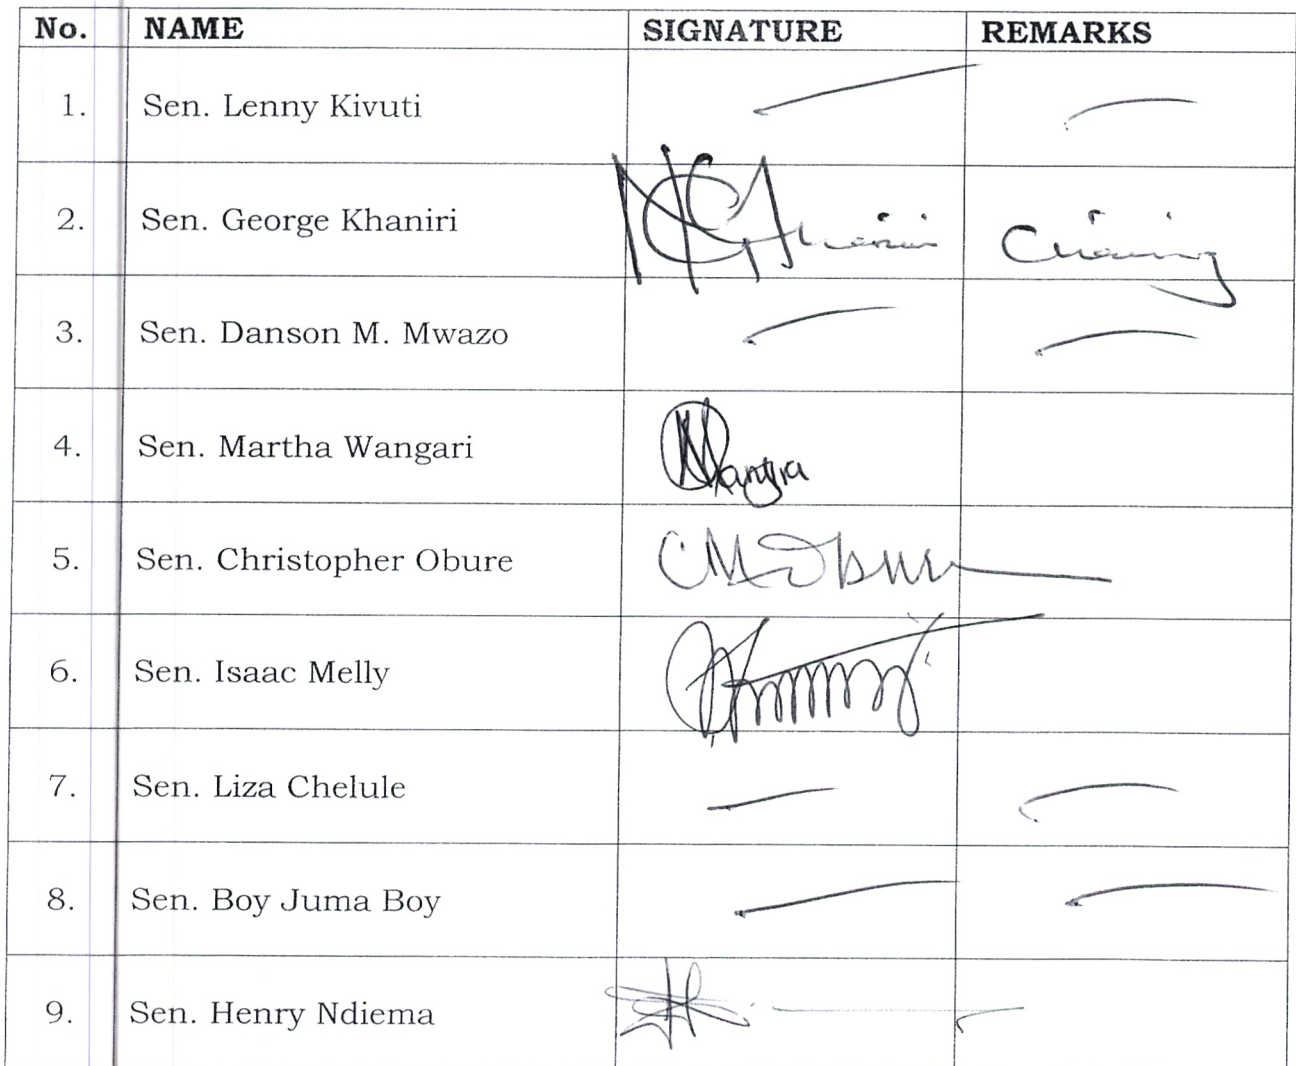 No. NAME SIGNATURE REMARKS
1. Sen. Lenny Kivuti
2. Sen. George Khaniri
3. Sen. Danson M. Mwazo
4. Sen. Martha Wangari
5. Sen. Christopher Obure CMObure
6. Sen. Isaac Melly
7. Sen. Liza Chelule
8. Sen. Boy Juma Boy
9. Sen. Henry Ndiema